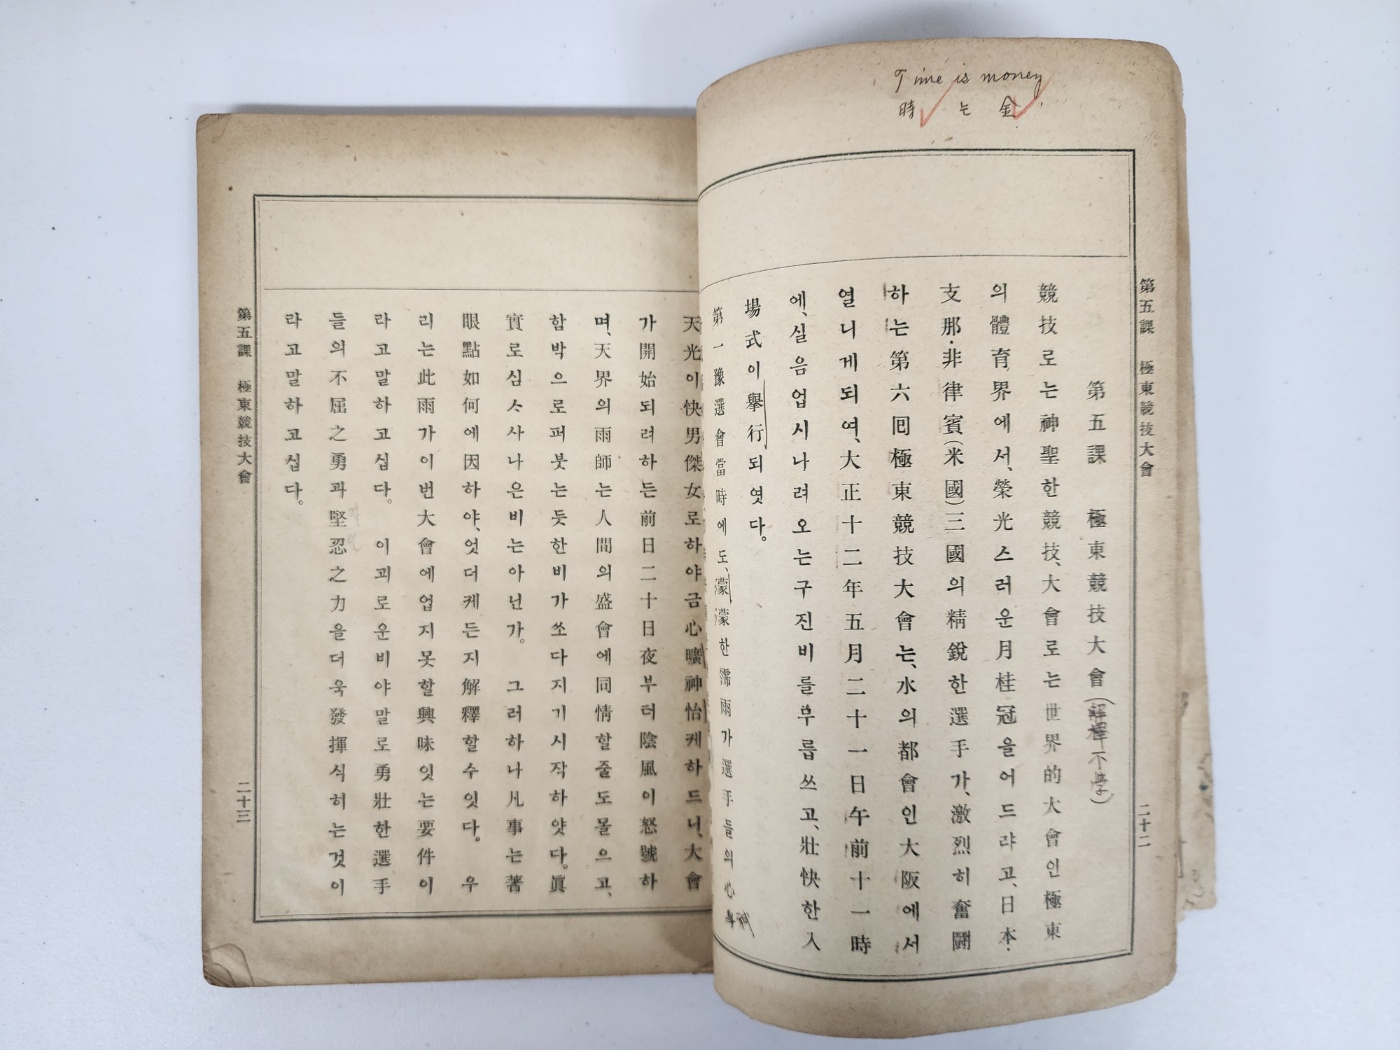 Time is money
時 는 金
第五課 極東競技大會
二十二
第五課 極東競技大會(解釋不學)
競技로는神聖한競技、大會로는世界的大會인極東
의體育界에서、榮光스러운月桂冠을어드랴고、日本・
支那・非律賓(米國)三國의精銳한選手가、激烈히奮鬪
하는第六回極東競技大會는、水의都會인大阪에서
열니게되여、大正十二年五月二十一日午前十一時
에、실음업시나려오는구진비를부릅쓰고、壯快한入
場式이擧行되엿다。
第一豫選會當時에도、濛濛한霈雨가選手들의心
天光이快男傑女로하야금心曠神怡케하드니、大會
가開始되려하든前日二十日夜부터陰風이怒號하
며、天界의雨師는人間의盛會에同情할줄도몰으고、
함박으로퍼붓는듯한비가쏘다지기시작하얏다。眞
實로심ㅅ사나은비는아닌가。 그러하나凡事는著
眼點如何에因하야、엇더케든지解釋할수잇다。 우
리는此雨가이번大會에업지못할興味잇는要件이
라고말하고십다。 이괴로운비야말로勇壯한選手
들의不屈之勇과堅忍之力을더욱發揮식히는것이
라고말하고십다。
第五課 極東競技大會
二十三